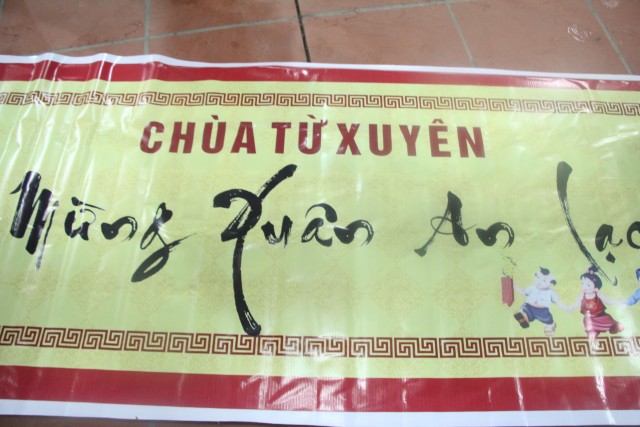 CHÙA TỪ XUYÊN
Mừng Xuân An Lạc